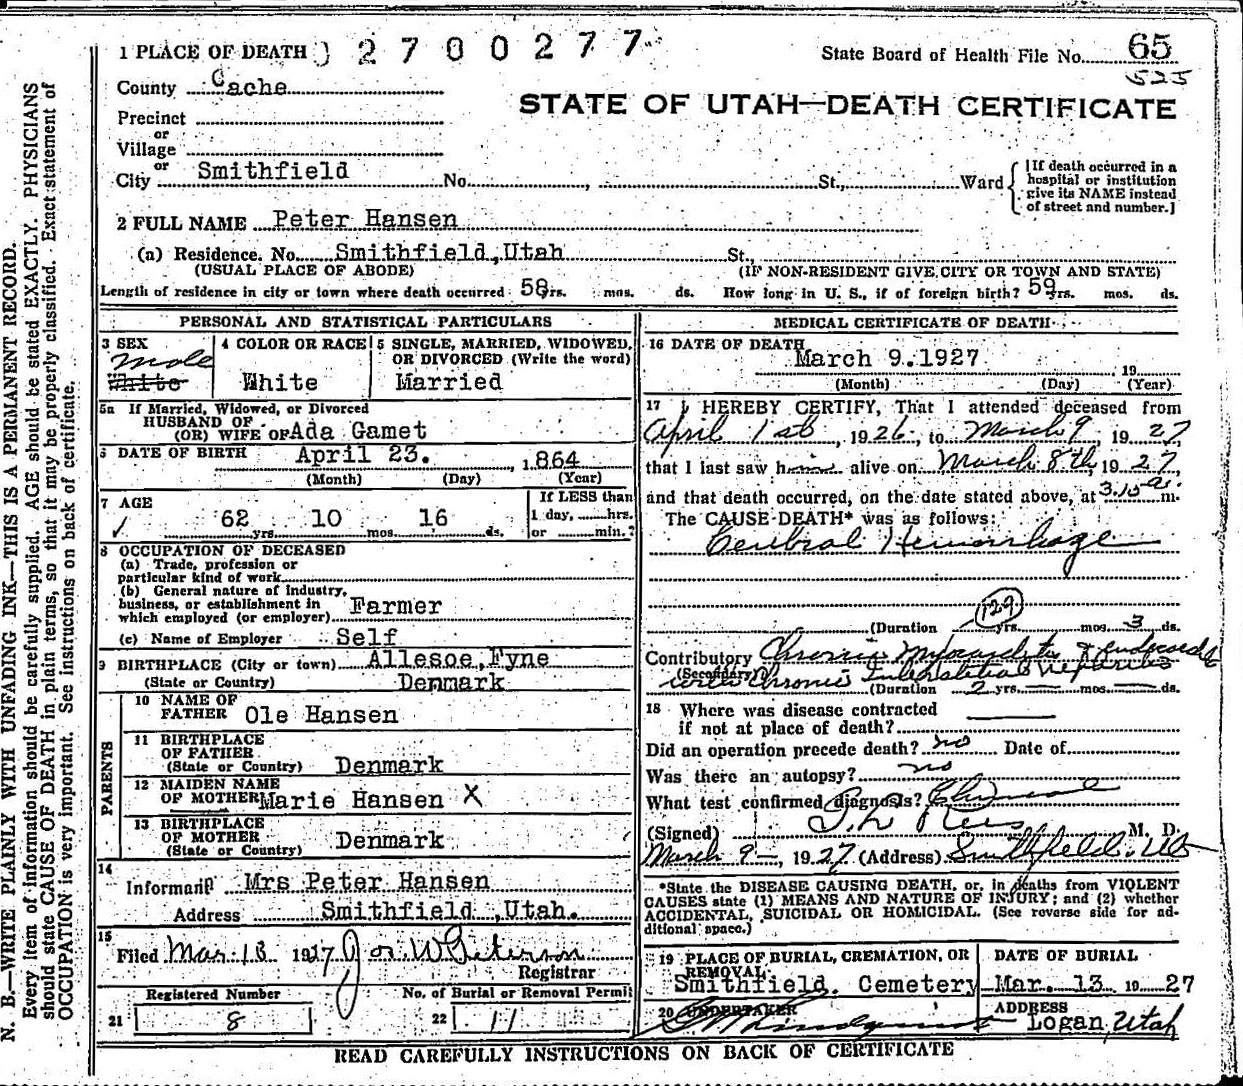 1 PLACE OF DEATH 2700277 State Board of Health File No. 65
525
County Cache
STATE OF UTAH—DEATH CERTIFICATE
Precinct
or
Village
or
City Smithfield No. , St., Ward { [If death occurred in a hospital or institution give its NAME instead of street and number.]
2 FULL NAME Peter Hansen
(a) Residence. No. Smithfield, Utah St.,
(USUAL PLACE OF ABODE) (IF NON-RESIDENT GIVE CITY OR TOWN AND STATE)
Length of residence in city or town where death occurred 58 yrs. mos. ds. How long in U. S., if of foreign birth? 59 yrs. mos. ds.
PERSONAL AND STATISTICAL PARTICULARS
3 SEX
Male
White
4 COLOR OR RACE
White
5 SINGLE, MARRIED, WIDOWED, OR DIVORCED (Write the word)
Married
5a If Married, Widowed, or Divorced
HUSBAND OF
(OR) WIFE OF Ada Gamet
6 DATE OF BIRTH April 23. , 1864
(Month) (Day) (Year)
7 AGE
62 yrs. 10 mos. 16 ds.
If LESS than
1 day, hrs.
or min.?
8 OCCUPATION OF DECEASED
(a) Trade, profession or
particular kind of work
(b) General nature of industry,
business, or establishment in
which employed (or employer) Farmer
(c) Name of Employer Self
9 BIRTHPLACE (City or town) Allesoe, Fyne
(State or Country) Denmark
PARENTS
10 NAME OF
FATHER Ole Hansen
11 BIRTHPLACE
OF FATHER
(State or Country) Denmark
12 MAIDEN NAME
OF MOTHER Marie Hansen X
13 BIRTHPLACE
OF MOTHER
(State or Country) Denmark
14
Informant Mrs Peter Hansen
Address Smithfield, Utah.
15
Filed Mar. 13 1927 Jos W Peterson
Registrar
Registered Number
21 8
No. of Burial or Removal Permit
22 11
MEDICAL CERTIFICATE OF DEATH
16 DATE OF DEATH
March 9. 1927 19
(Month) (Day) (Year)
17 I HEREBY CERTIFY, That I attended deceased from
April 1st, 1926, to March 9, 1927
that I last saw him alive on March 8th, 1927,
and that death occurred, on the date stated above, at 3.15 a m.
The CAUSE DEATH* was as follows:
Cerebral Hemorrhage
129
(Duration yrs. mos. 3 ds.
Contributory Chronic Myocarditis & Endocarditis
(Secondary) with Chronic Interstitial Nephritis
(Duration 2 yrs. mos. ds.
18 Where was disease contracted
if not at place of death?
Did an operation precede death? no Date of
Was there an autopsy? no
What test confirmed diagnosis? Clinical
(Signed) Rees M. D.
March 9, 1927 (Address) Smithfield, Ut
*State the DISEASE CAUSING DEATH, or, in deaths from VIOLENT
CAUSES state (1) MEANS AND NATURE OF INJURY; and (2) whether
ACCIDENTAL, SUICIDAL OR HOMICIDAL. (See reverse side for ad-
ditional space.)
19 PLACE OF BURIAL, CREMATION, OR
REMOVAL
Smithfield. Cemetery
DATE OF BURIAL
Mar. 13 19 27
20 UNDERTAKER
ADDRESS
Logan, Utah
READ CAREFULLY INSTRUCTIONS ON BACK OF CERTIFICATE
N. B.—WRITE PLAINLY WITH UNFADING INK—THIS IS A PERMANENT RECORD.
Every item of information should be carefully supplied. AGE should be stated EXACTLY. PHYSICIANS
should state CAUSE OF DEATH in plain terms, so that it may be properly classified. Exact statement of
OCCUPATION is very important. See instructions on back of certificate.